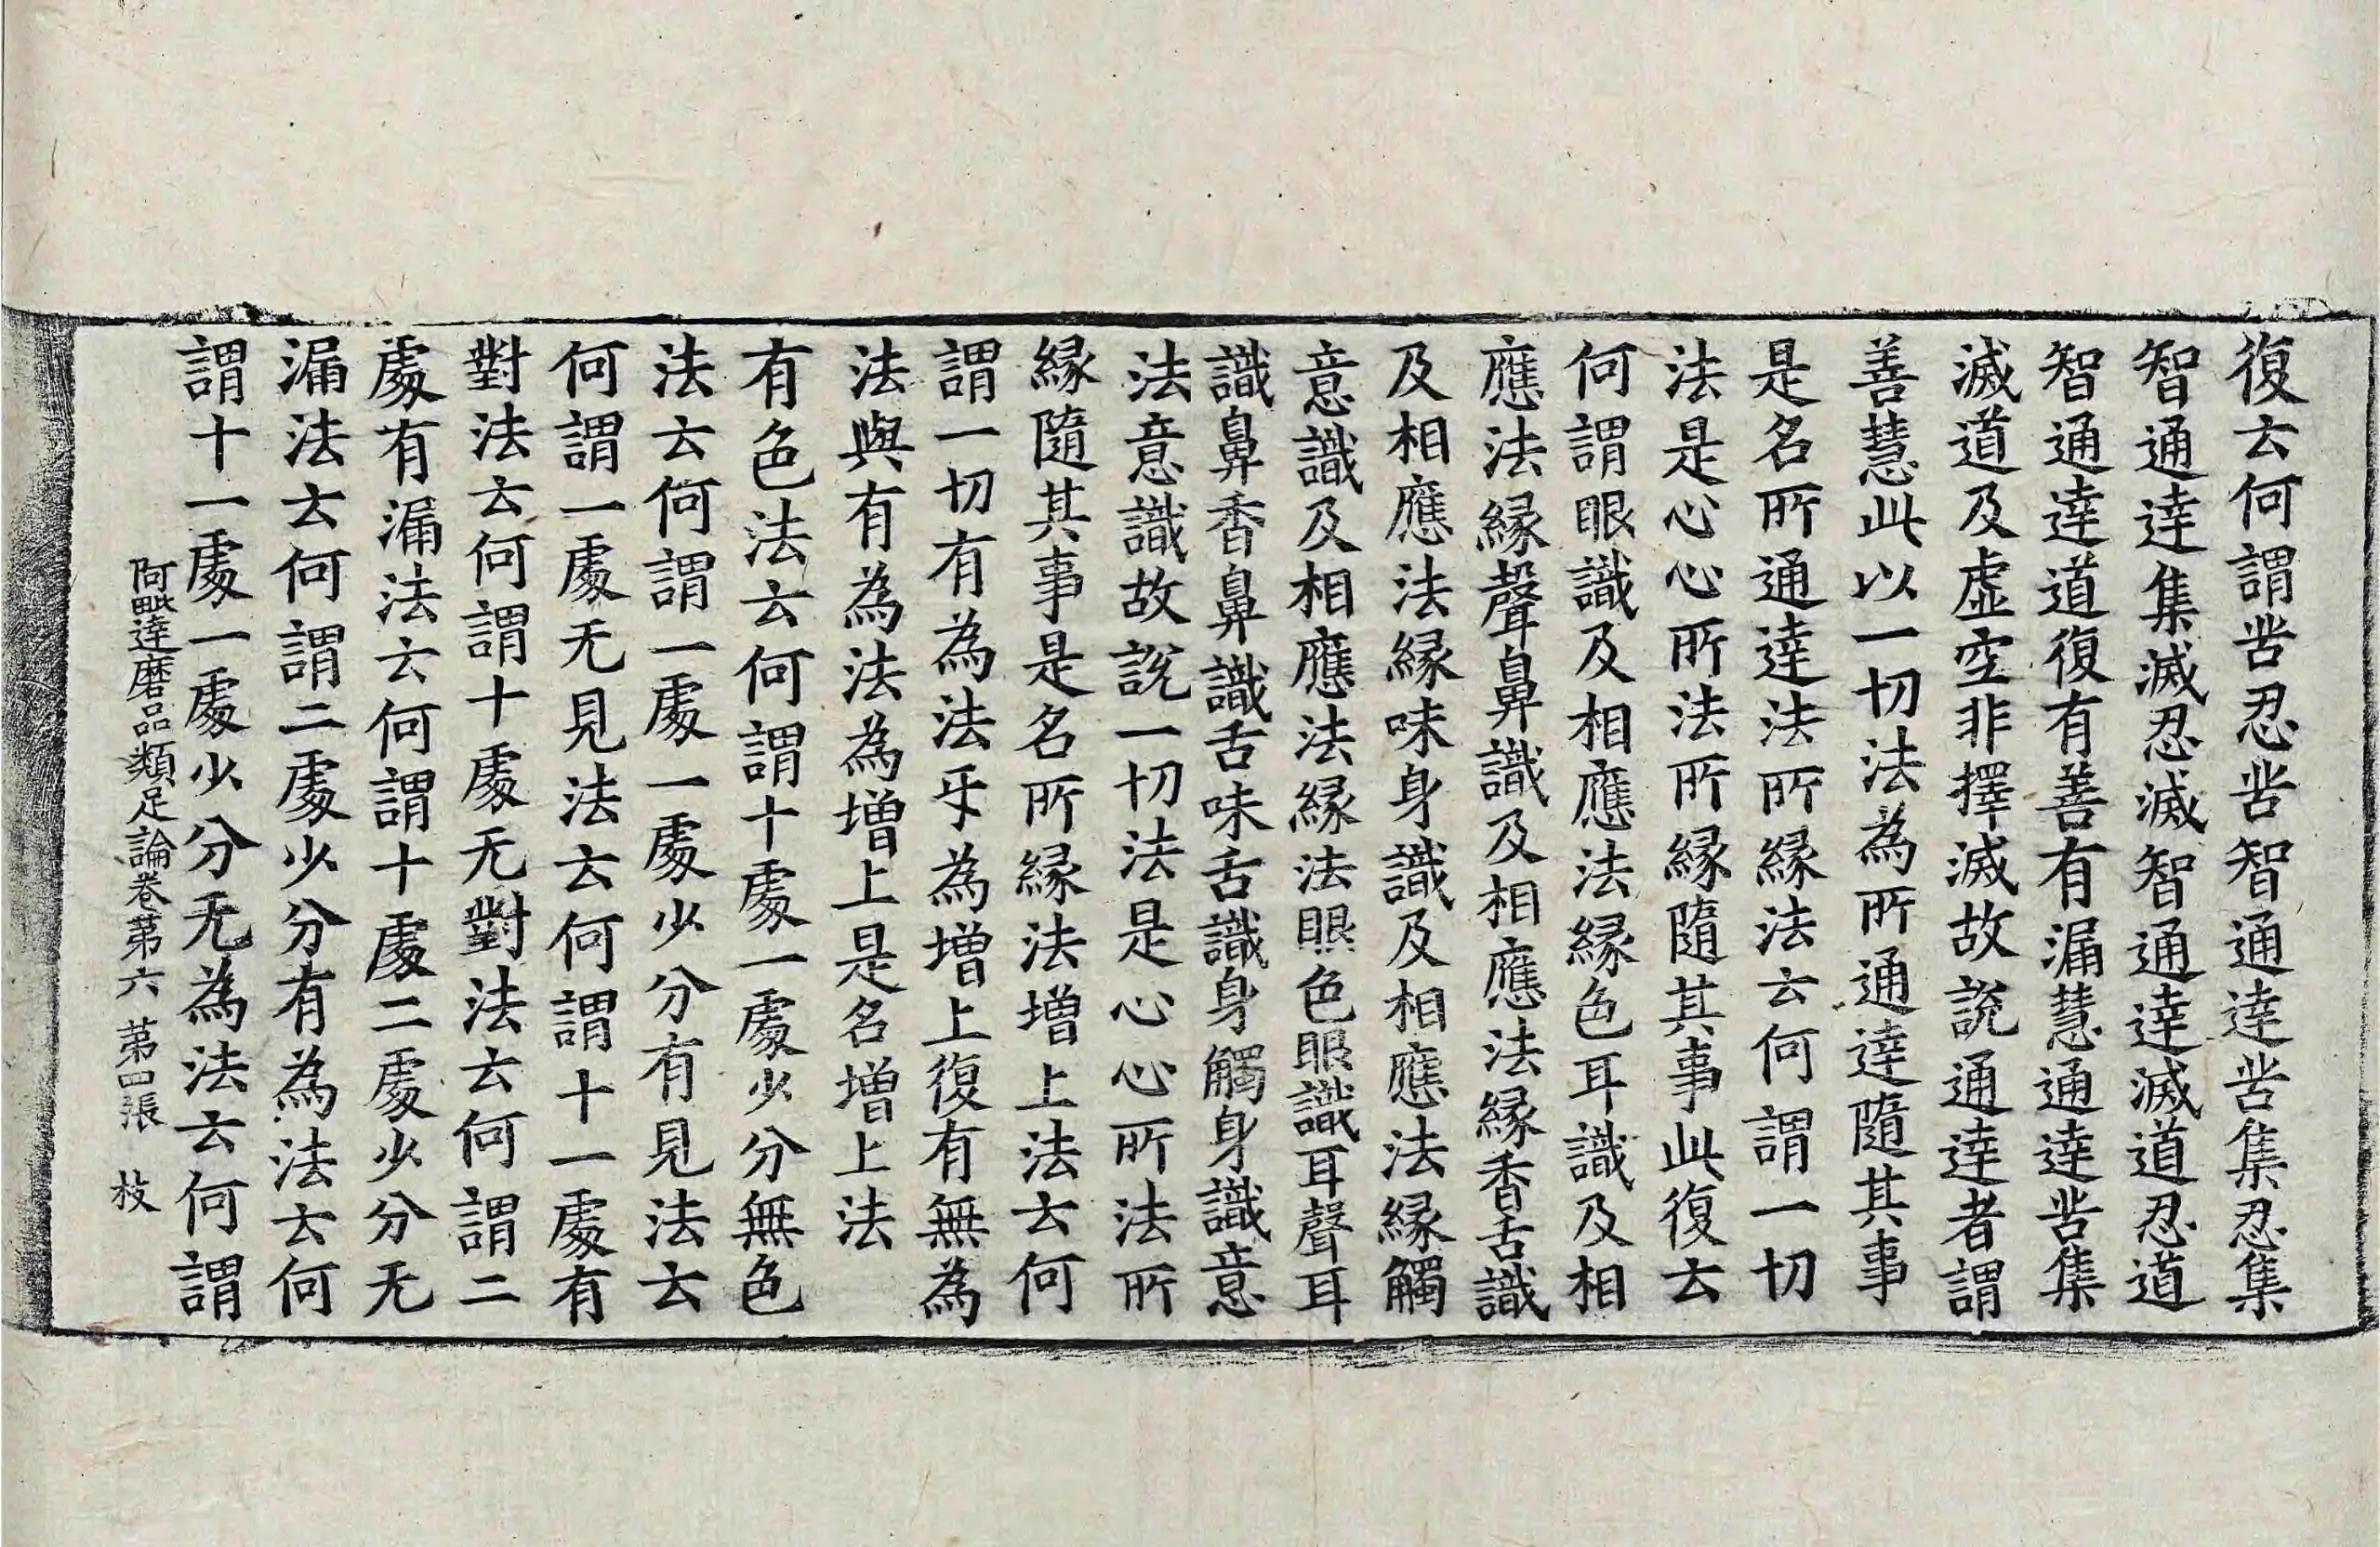 復云何謂苦忍苦智通達苦集忍集
智通達集滅忍滅智通達滅道忍道
智通達道復有善有漏慧通達苦集
滅道及虛空非擇滅故說通達者謂
善慧此以一切法為所通達隨其事
是名所通達法所緣法云何謂一切
法是心心所法所緣隨其事此復云
何謂眼識及相應法緣色耳識及相
應法緣聲鼻識及相應法緣香舌識
及相應法緣味身識及相應法緣觸
意識及相應法緣法眼色眼識耳聲耳
識鼻香鼻識舌味舌識身觸身識意
法意識故說一切法是心心所法所
緣隨其事是名所緣法增上法云何
謂一切有為法㸦為增上復有無為
法與有為法為增上是名增上法
有色法云何謂十處一處少分無色
法云何謂一處一處少分有見法云
何謂一處无見法云何謂十一處有
對法云何謂十處无對法云何謂二
處有漏法云何謂十處二處少分无
漏法云何謂二處少分有為法云何
謂十一處一處少分无為法云何謂
阿毗達磨品類足論卷第六 第四張 枝